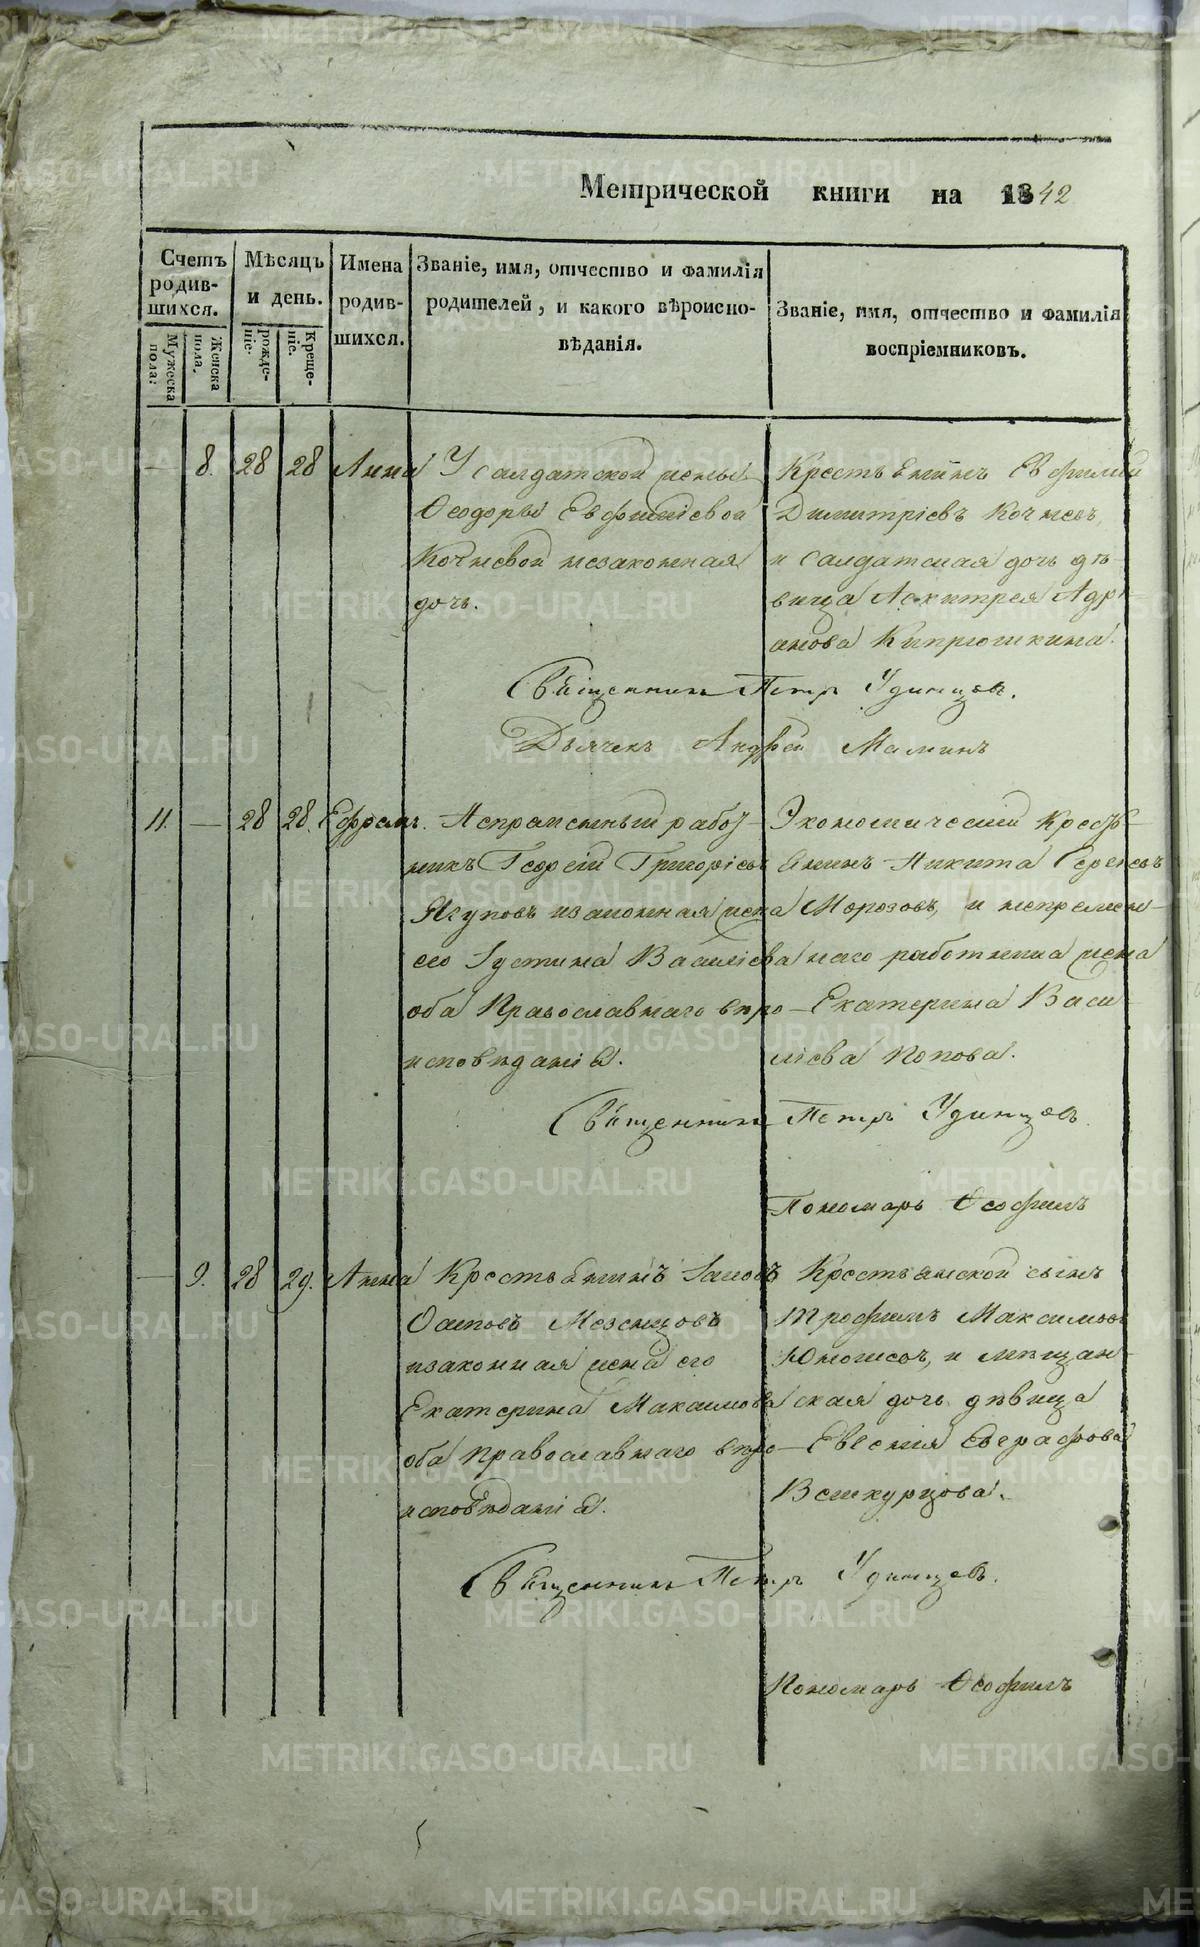 Метрической книги на 1842
Счетъ родив-шихся.
Мужеска пола:
Женска пола.
Мѣсяцъ и день.
рожде-ніе.
Креще-ніе.
Имена родив-шихся.
Званіе, имя, отчество и фамилія
родителей, и какого вѣроиспо-
вѣданія.
Званіе, имя, отчество и фамилія
воспріемниковъ.
— 8. 28 28 Анна
У салдатской жены
Ѳеодоры Евфиміевой
Кочневой незаконная
дочь.
Крестьянинъ Евфимій
Димитріевъ Кочневъ,
и салдатская дочь дѣ-
вица
анова Кипрюшкина.
Священникъ Петръ Удинцовъ.
Дьячекъ Андрей Маминъ
11. — 28 28. Ефремъ.
Непременный работ-
никъ Георгій Григоріевъ
Ягуповъ изаконная жена
его Іустина Василіева
оба Православнаго веро-
исповѣданія.
Экономическій Кресть-
янинъ Никита Сергеевъ
Морозовъ, и непремен-
наго работника жена
Екатерина Васи-
ліева Попова.
Священникъ Петръ Удинцовъ
Пономарь Ѳеофилъ
— 9. 28 29. Анна
Крестьянинъ Іаковъ
Осиповъ Мезенцовъ
изаконная жена его
Екатерина Максимова
оба Православнаго веро-
исповѣданія.
Крестьянской сынъ
Трофимъ Максимовъ
и мѣщан-
ская дочь дѣвица
Евгенія Евграфова
Вешкурцова.
Священникъ Петръ Удинцовъ.
Пономарь Ѳеофилъ
METRIKI.GASO-URAL.RU